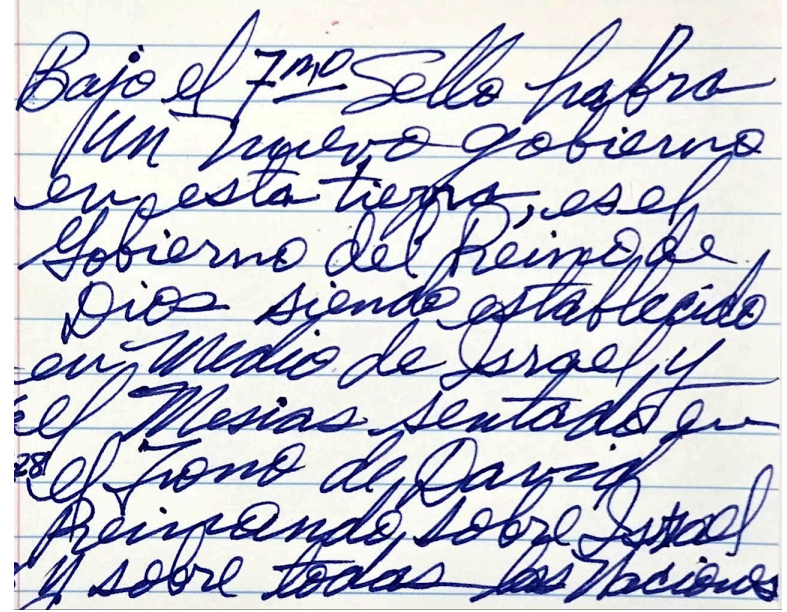 Bajo el 7mo Sello habra
un nuevo gobierno
en esta tierra, es el
Gobierno del Reino de
Dios siendo establecido
en medio de Israel y
el Mesias sentado en
28 el Trono de David
Reinando sobre Israel
y sobre todas las Naciones